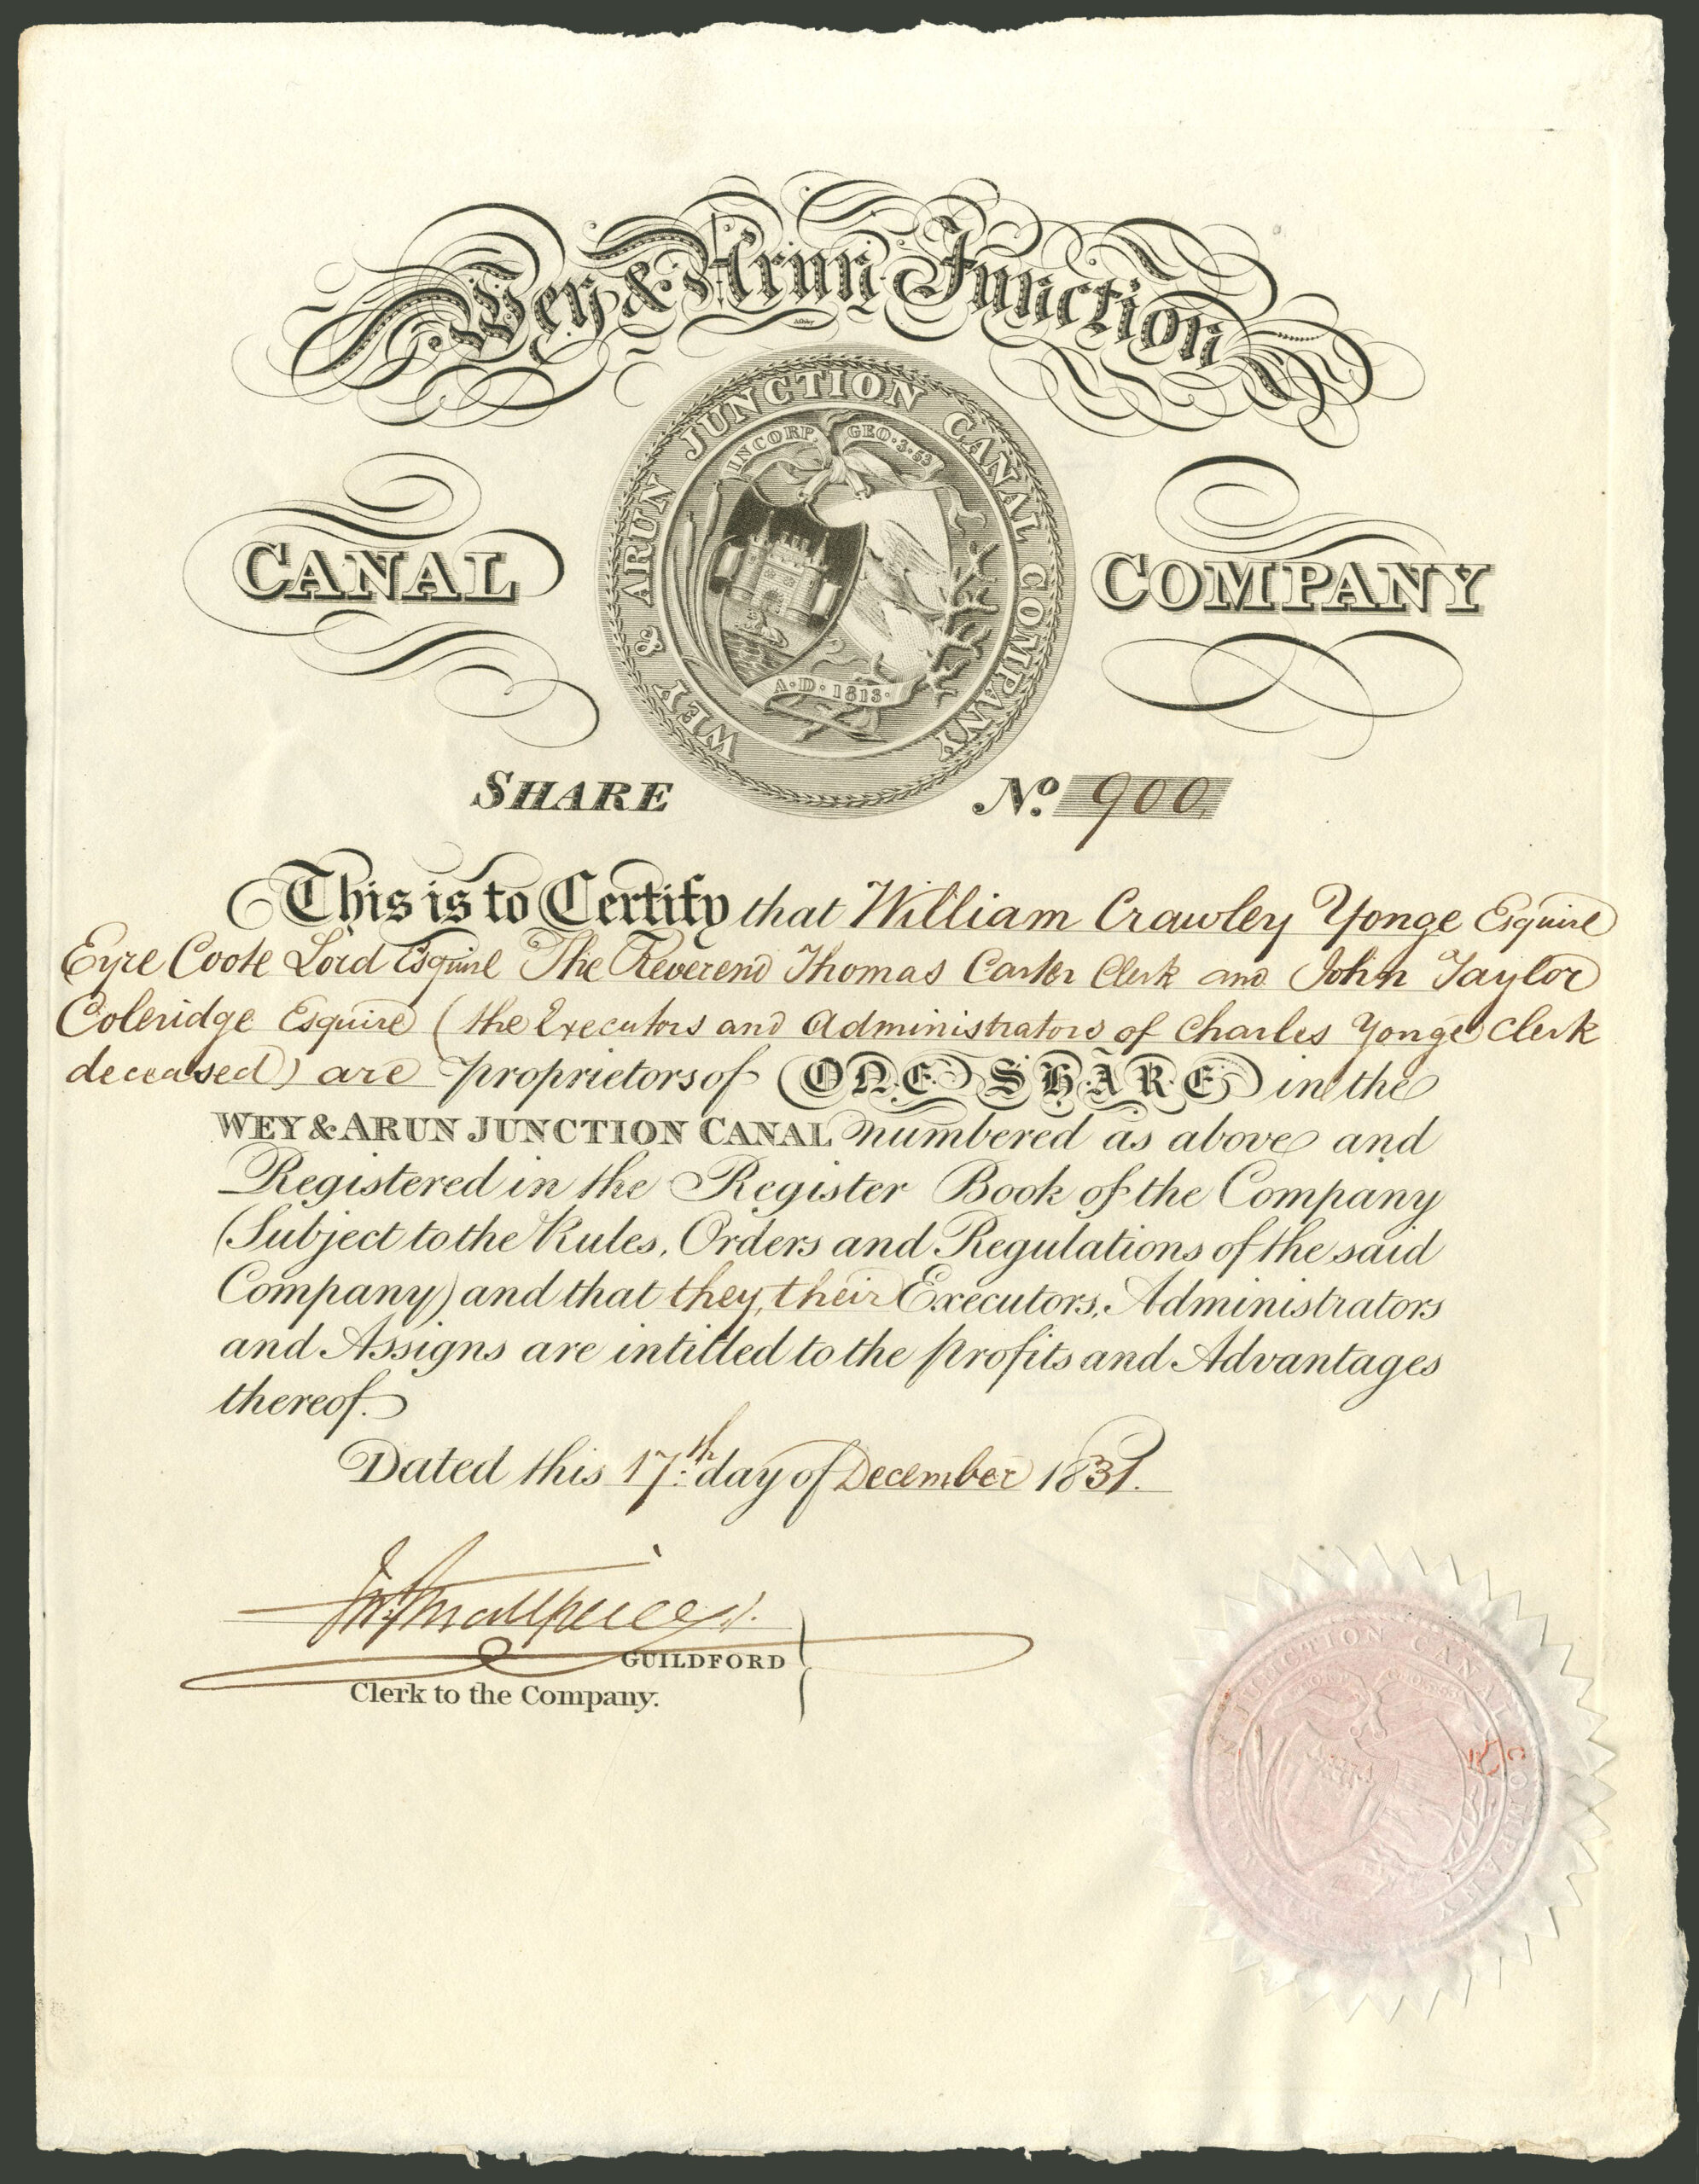 Wey & Arun Junction
CANAL COMPANY
WEY & ARUN JUNCTION CANAL COMPANY
INCORP. GEO. 3. 53
A. D. 1813.
SHARE No. 900.
This is to Certify that William Crawley Yonge Esquire
Eyre Coote Lord Esquire The Reverend Thomas Carter Clerk and John Taylor
Coleridge Esquire (the Executors and Administrators of Charles Yonge Clerk
deceased) are proprietors of ONE SHARE in the
WEY & ARUN JUNCTION CANAL numbered as above and
Registered in the Register Book of the Company
(Subject to the Rules, Orders and Regulations of the said
Company) and that they, their Executors, Administrators
and Assigns are intitled to the profits and Advantages
thereof.
Dated this 17th day of December 1831.
GUILDFORD
Clerk to the Company.
JUNCTION CANAL COMPANY